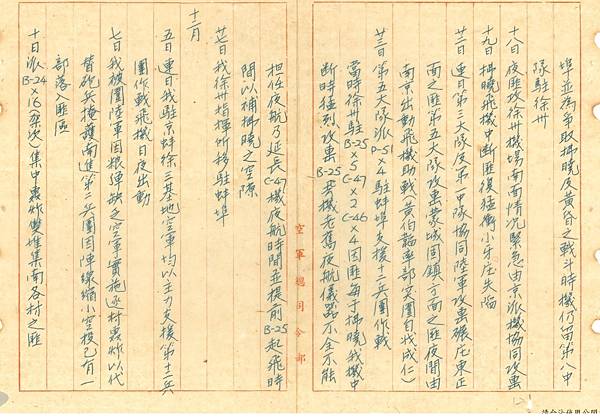 埠並為爭取拂曉及黃昏之戰斗時機仍留第八中
隊駐徐州
十八日夜匪攻徐州機場南面情況緊急由京派機協同攻擊
十九日拂曉飛機中斷匪復猛衝小牙庄失陷
廿二日連日第三大隊及第一中隊協同陸軍攻擊碾庄東正
面之匪第五大隊攻擊蒙城固鎮方面之匪夜間由
南京出動飛機助戰(黃伯韜率部突圍自戕成仁)
廿三日第五大隊派P-51×4駐蚌埠支援十二兵團作戰
當時徐州駐B-25×5 C-47×2 C-46×4因匪每于拂曉我機中
斷時猛烈攻擊B-25 機老舊夜航儀器不全不能
空軍總司令部
担任夜航乃延長C-47機夜航時間並提前B-25起飛時
間以補拂曉之空隙
廿七日我徐州指揮所移駐蚌埠
十二月
五日連日我駐京蚌徐三基地空軍均以主力支援第十二兵
團作戰飛機日夜出動
七日我被圍陸軍因粮彈缺乏空軍實施逐村轟炸以代
替砲兵掩護南進第二兵團因陣線縮小空投已有一
部落入匪區
十日派B-24×16(架次)集中轟炸雙堆集南各村之匪